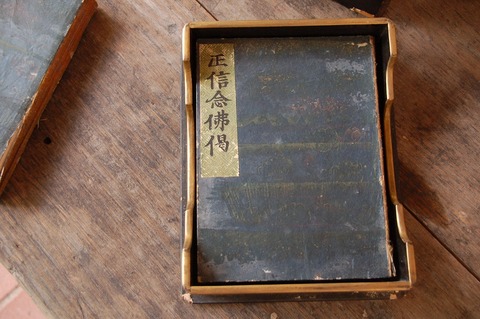 正信念佛偈